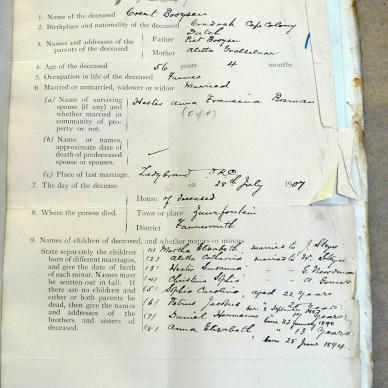 1. Name of the deceased Coert Booysen
2. Birthplace and nationality of the deceased Cradock Cape Colony
Dutch
3. Names and addresses of the parents of the deceased
Father Piet Booysen
Mother Aletta
4. Age of the deceased 56 years 4 months
5. Occupation in life of the deceased Farmer
6. Married or unmarried, widower or widow Married
(a) Name of surviving spouse (if any) and whether married in community of property or not.
Hester Anna Francina Bosman
(b) Name or names, approximate date of death of predeceased spouse or spouses.
(c) Place of last marriage. Ladybrand O.R.C.
7. The day of the decease on 28th July 1907
8. Where the person died.
House of deceased
Town or place
District Fauresmith
9. Names of children of deceased, and whether majors or minors
State separately the children born of different marriages, and give the date of birth of each minor. Names must be written out in full. If there are no children and either or both parents be dead, then give the names and addresses of the brothers and sisters of deceased.
(1) Martha Elizabeth married to J. Steyn
(2) Aletta Catharina married to W. Steyn
(3) Hester Susanna "
(4) Christina Sophia "
(5) Sophia Carolina, aged 22 years
(6) Petrus Jacobus
(7) Daniel Hermanus
born 22 January 1890
(8) Anna Elizabeth " 13 years
born 25 June 1894.